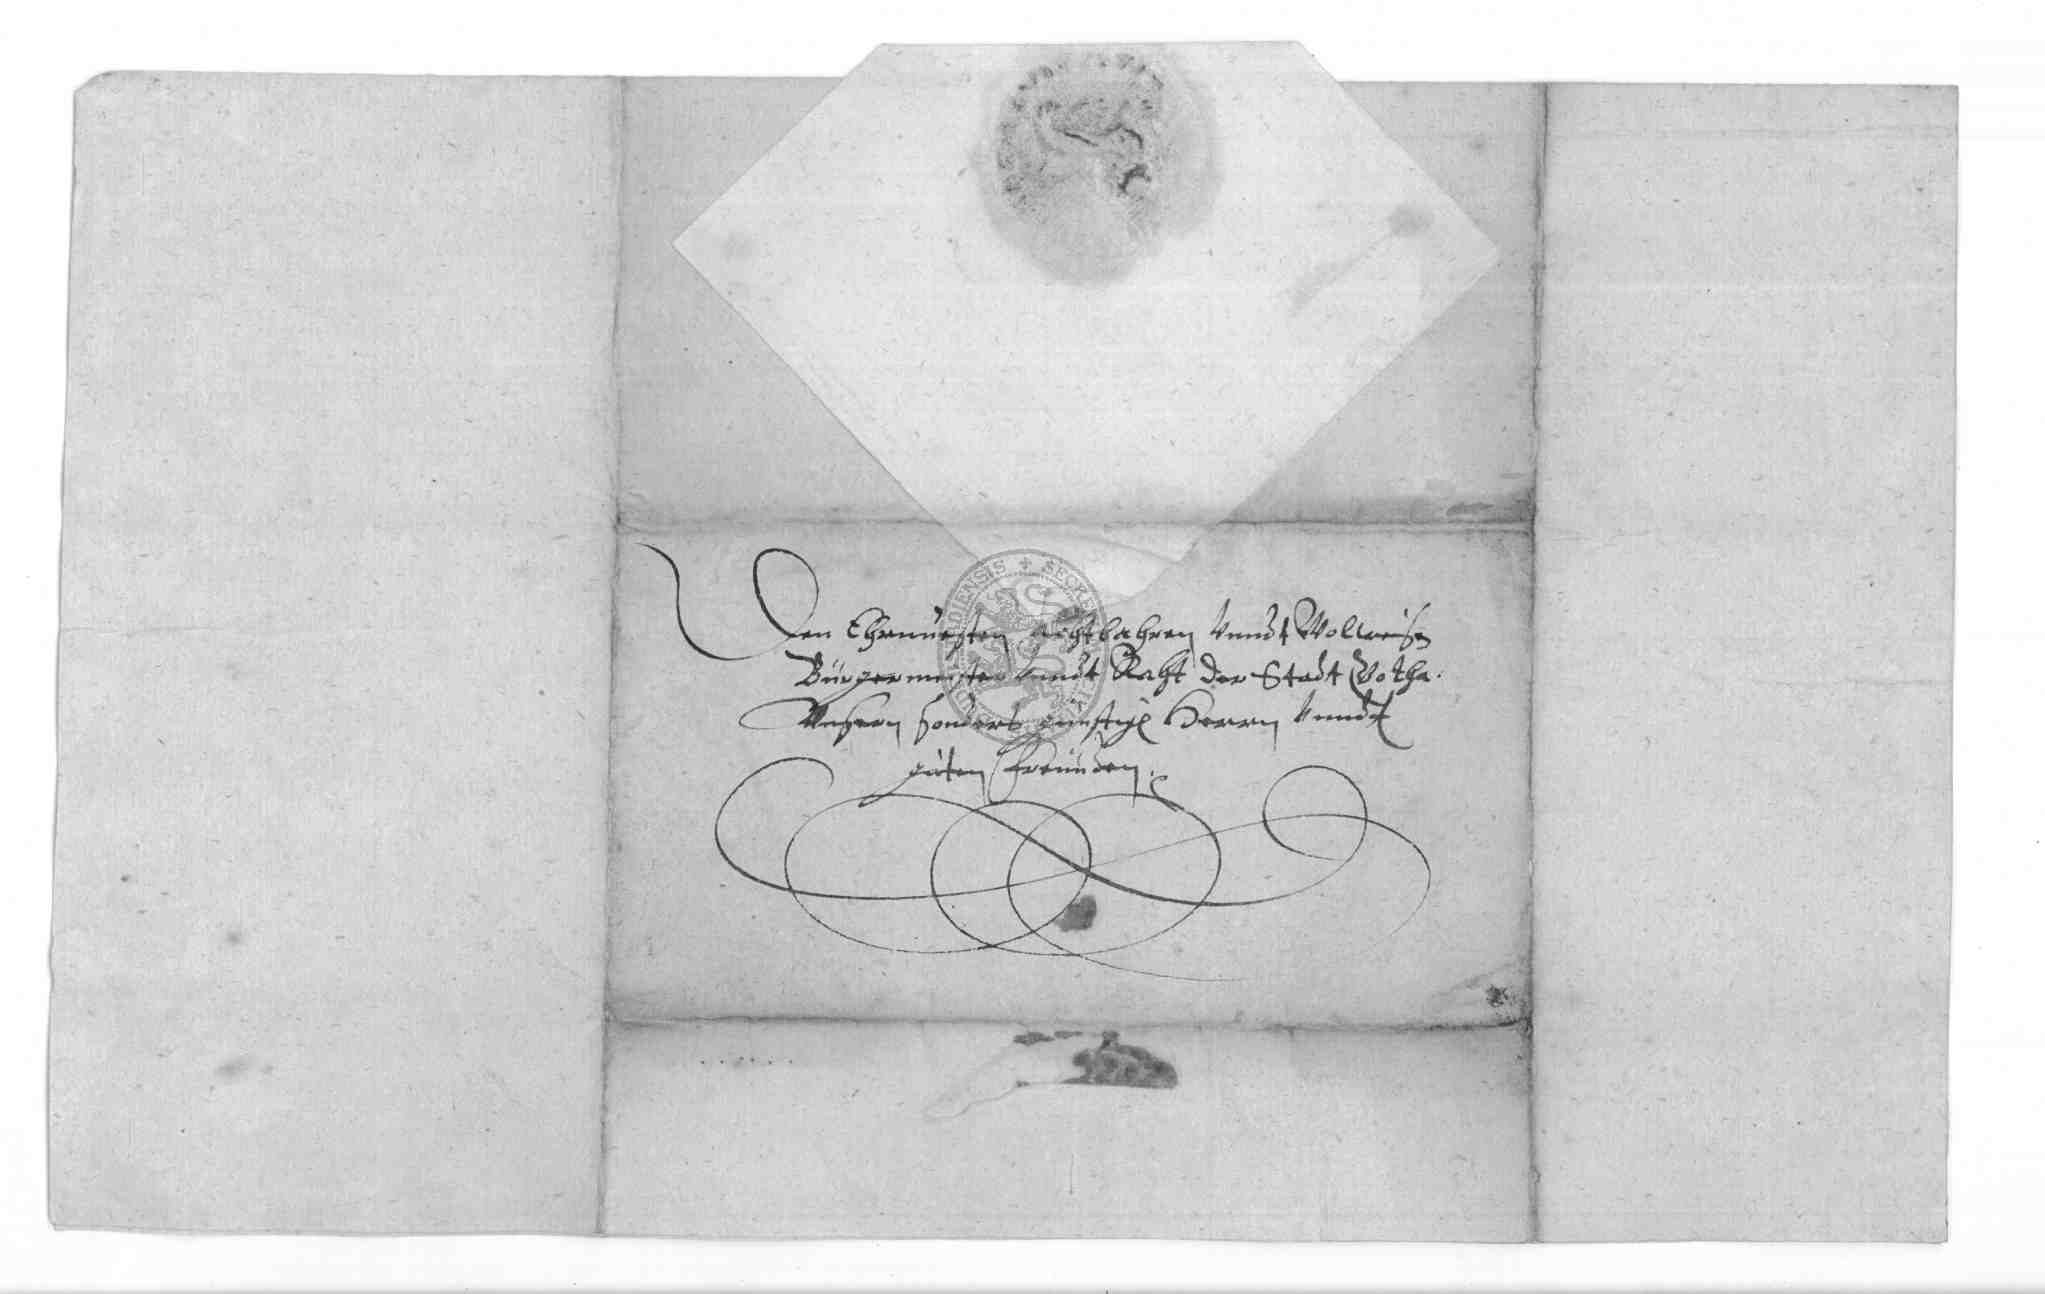 Den Ehrnuesten Achtbahren Vnndt Wollweisen
Bürgermeister Vnndt Raht der Stadt Gotha.
Vnsern sonders günstigen Herrn Vnndt
guten Freunden.
DIENSIS + SECRE